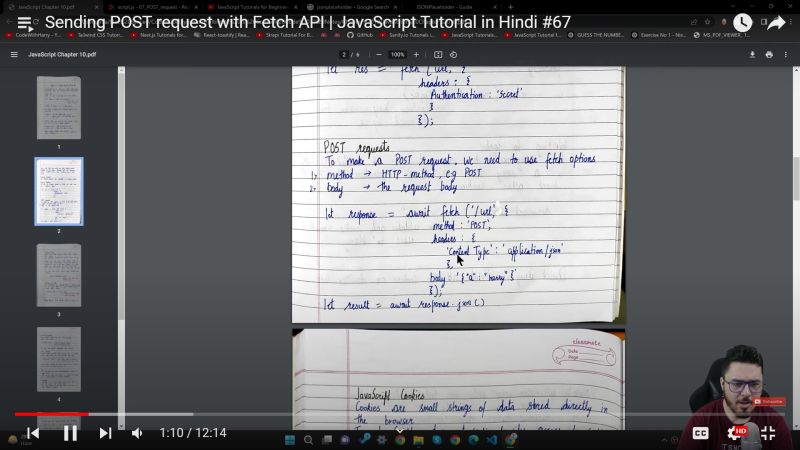 Sending POST request with Fetch API | JavaScript Tutorial in Hindi #67
JavaScript Chapter 10.pdf
2 / 6
100%
let res = fetch ('/url', {
headers : {
Authentication : 'secret'
}
});
POST requests
To make a POST request, we need to use fetch options
1> method → HTTP-method, e.g POST
2> body → the request body
let response = await fetch ('/url', {
method : 'POST',
headers : {
'Content Type' : 'application/json'
},
body : '{"a" : "harry"}'
});
let result = await response.json()
classmate
Date
Page
JavaScript Cookies
Cookies are small strings of data stored directly in
the browser
1
2
3
4
Subscribe
1:10 / 12:14
CC
HD